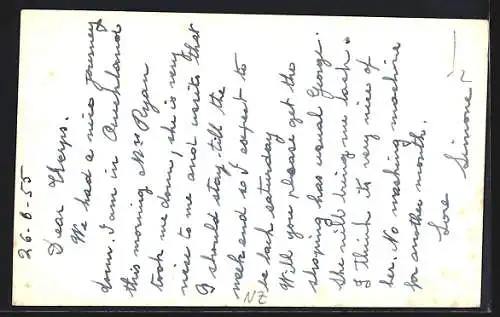 26-6-55
Dear Therps.
We had a nice journey
down. I am in Auckland
this morning Mrs Ryan
took me down, she is very
nice to me and writes that
I should stay till the
week end so I expect to
be back saturday
Will you please get the
shoping has usual George.
She will bring me back.
I think its very nice of
her. No washing machine
for another month.
Love Simone
NZ